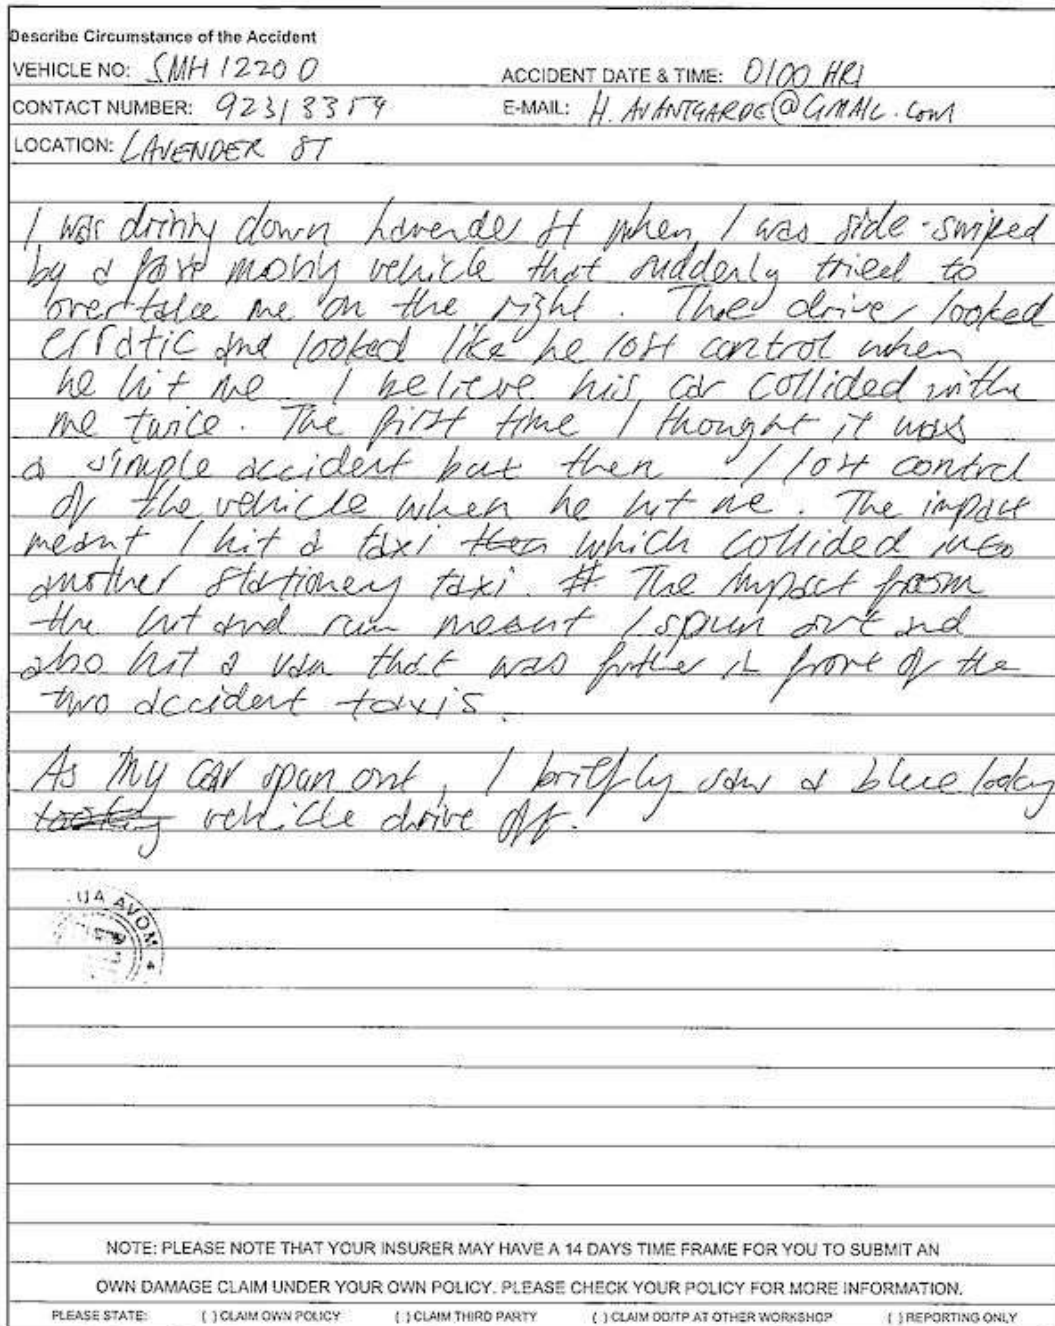 Describe Circumstance of the Accident
VEHICLE NO: SMH 1220 D ACCIDENT DATE & TIME: 0100 HRS
CONTACT NUMBER: 92313359 E-MAIL: H.AVANTGARDE@GMAIL.COM
LOCATION: LAVENDER ST
I was driving down Lavender St when I was side-swiped
by a fast moving vehicle that suddenly tried to
overtake me on the right. The driver looked
erratic and looked like he lost control when
he hit me I believe his car collided with
me twice. The first time I thought it was
a simple accident but then I lost control
of the vehicle when he hit me. The impact
meant I hit a taxi then which collided into
another stationery taxi. # The impact from
the hit and run meant I spun out and
also hit a van that was further in front of the
two accident taxis.
As my car spun out, I briefly saw a blue looking
vehicle drive off.
UA AVOM
NOTE: PLEASE NOTE THAT YOUR INSURER MAY HAVE A 14 DAYS TIME FRAME FOR YOU TO SUBMIT AN
OWN DAMAGE CLAIM UNDER YOUR OWN POLICY. PLEASE CHECK YOUR POLICY FOR MORE INFORMATION.
PLEASE STATE: ( ) CLAIM OWN POLICY ( ) CLAIM THIRD PARTY ( ) CLAIM OD/TP AT OTHER WORKSHOP ( ) REPORTING ONLY